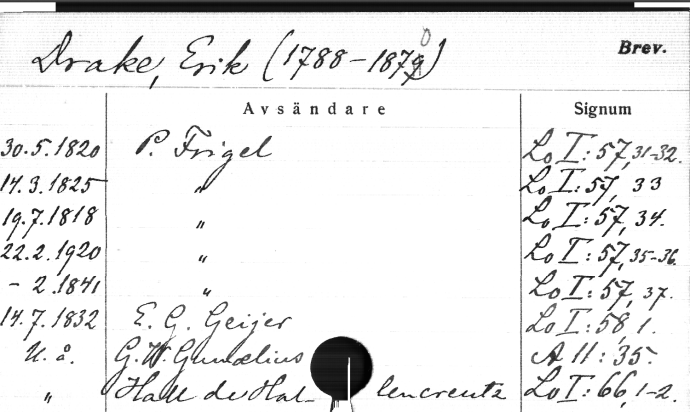 Drake, Erik (1788-1870) Brev.
Avsändare Signum
30.5.1820 P. Frigel Lo I: 57, 31-32.
14.3.1825 " Lo I: 57, 33
19.7.1818 " Lo I: 57, 34.
22.2.1920 " Lo I: 57, 35-36.
- 2.1841 " Lo I: 57, 37.
14.7.1832 E. G. Geijer Lo I: 58, 1.
U. å. G. W. Gumælius A 11: 35.
" Hall de Hal- lencreutz Lo I: 66, 1-2.